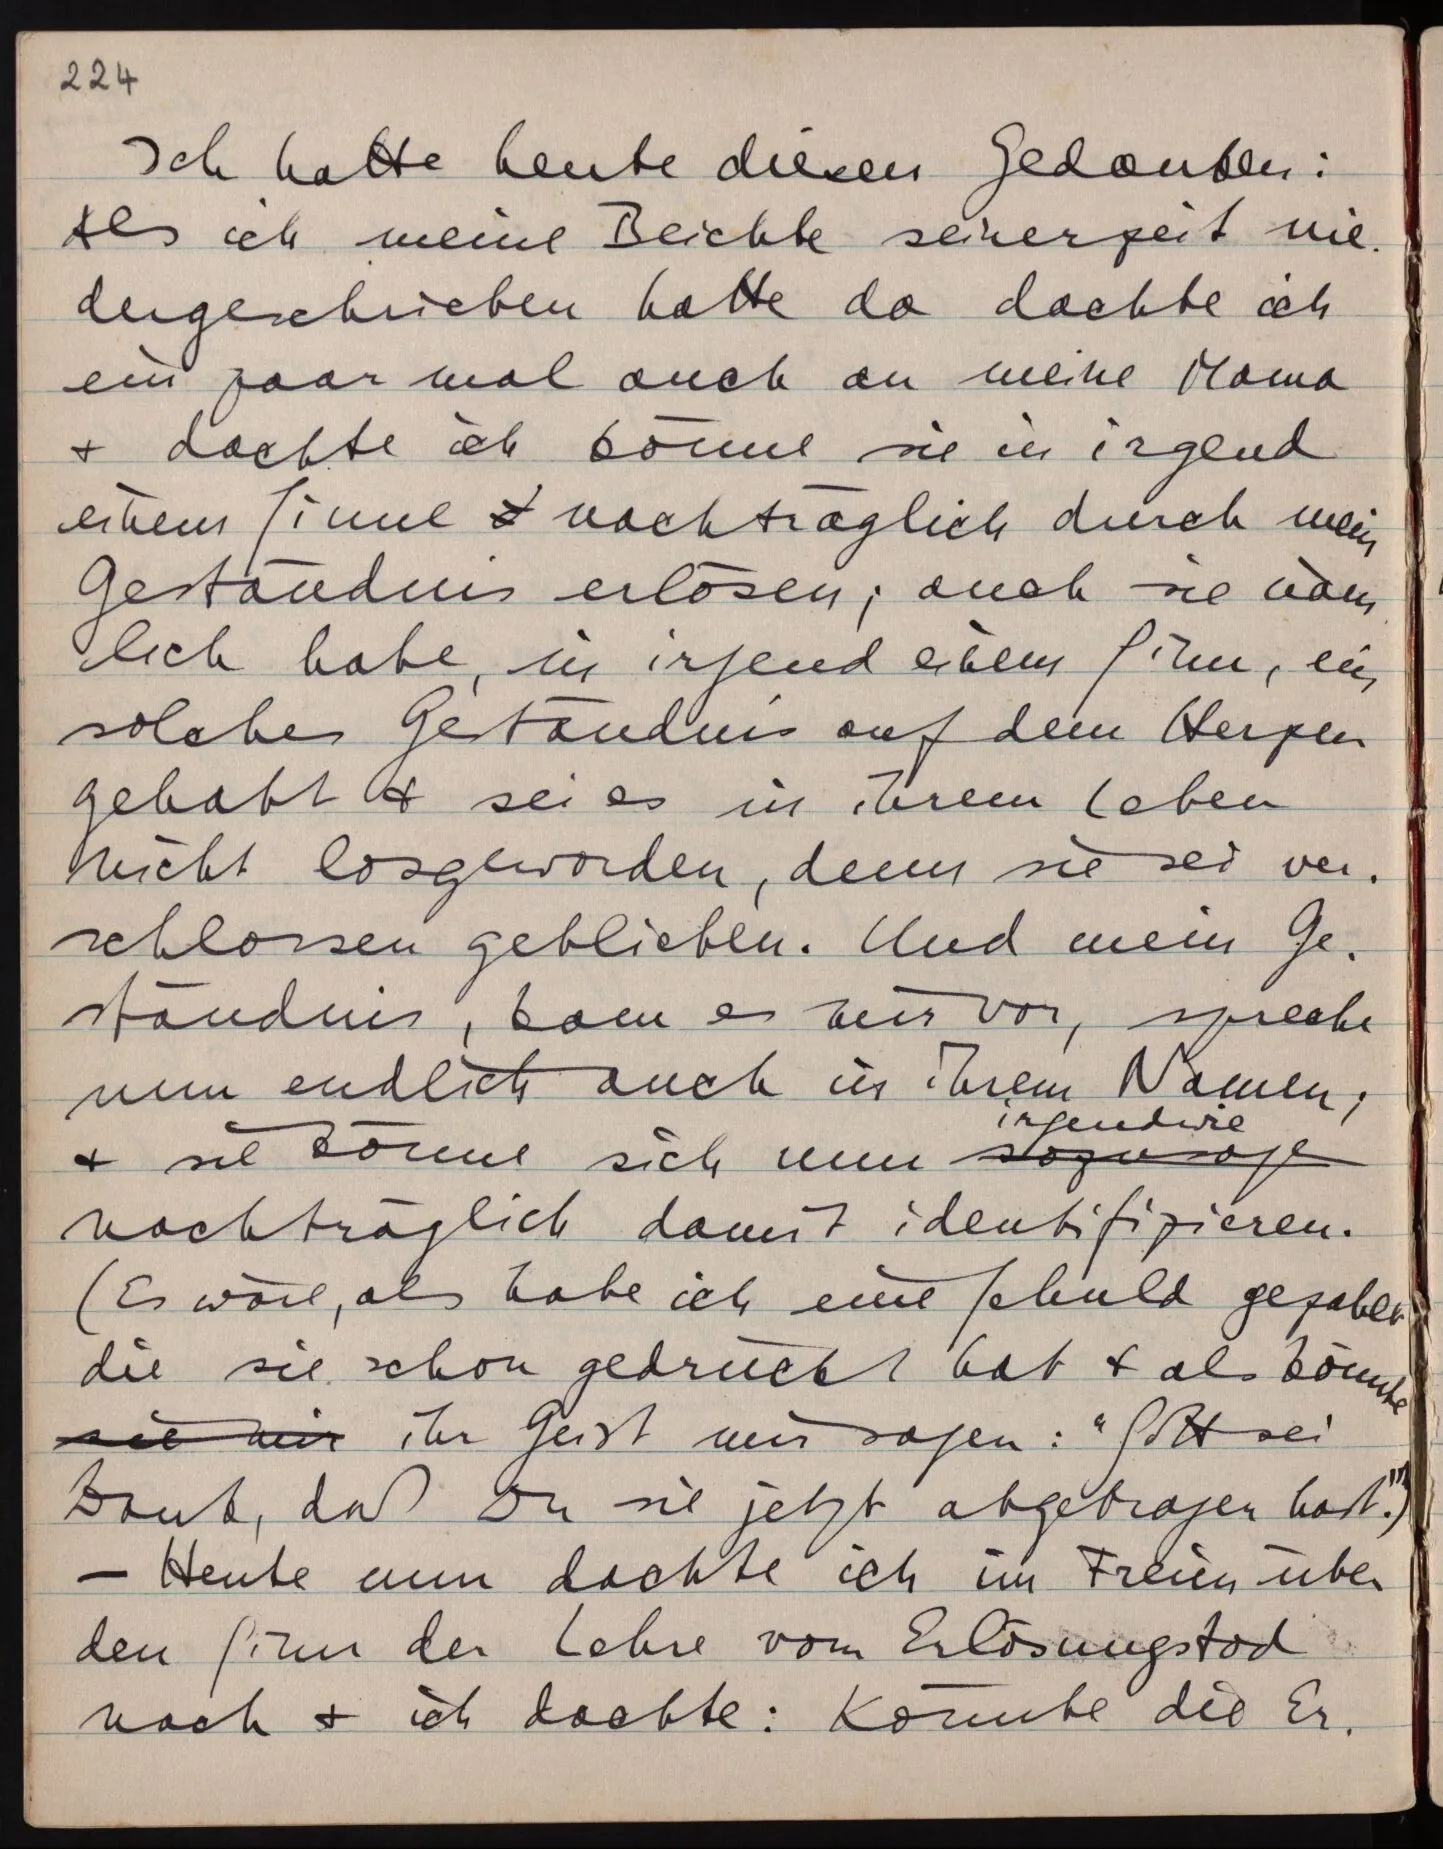 224
Ich hatte heute diesen Gedanken:
Als ich meine Beichte seinerzeit nie-
dergeschrieben hatte da dachte ich
ein paar mal auch an meine Mama
+ dachte ich könne sie in irgend
einem Sinne nachträglich durch mein
Geständnis erlösen; auch sie näm-
lich habe, in irgend einem Sinn, ein
solches Geständnis auf dem Herzen
gehabt & sei es in ihrem Leben
nicht losgeworden, denn sie sei ver-
schlossen geblieben. Und mein Ge-
ständnis, kam es mir vor, spreche
nun endlich auch in ihrem Namen;
+ sie könne sich nun sozusage irgendwie
nachträglich damit identifizieren.
(Es wäre, als habe ich eine Schuld gezahlt
die sie schon gedrückt hat & als könnte
sie mir ihr Geist mir sagen: "Gott sei
Dank, daß Du sie jetzt abgetragen hast.")
– Heute nun dachte ich im Freien über
den Sinn der Lehre vom Erlösungstod
nach + ich dachte: Könnte die Er-